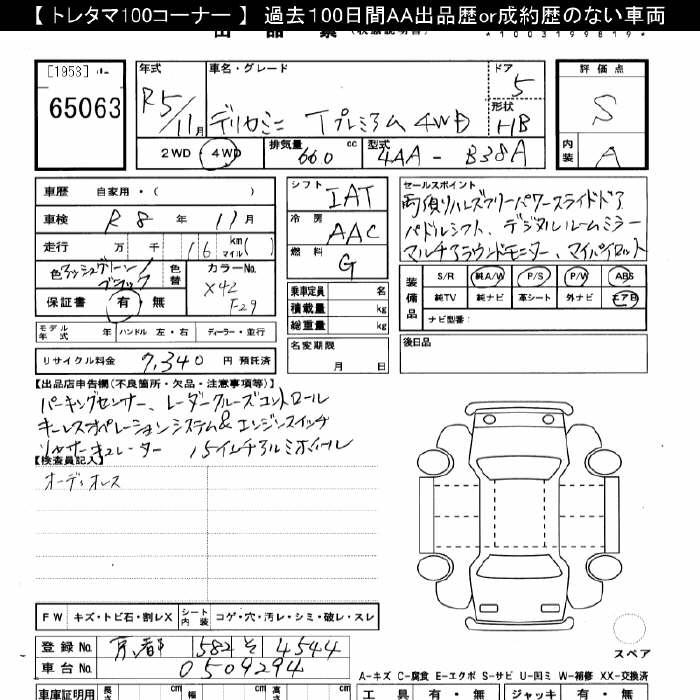 【 トレタマ100コーナー 】 過去100日間AA出品歴or成約歴のない車両
出 品 票 (状態説明書)
*1003199819*
[1953]
65063
年式 R5/11月
車名・グレード デリカミニ Tプレミアム 4WD
ドア 5
形状 HB
2WD ・ 4WD
排気量 660 cc
型式 4AA - B38A
評価点 S
内装 A
車歴 自家用・( )
車検 R8 年 11月
走行 万 千 16 km マイル( )
色 アッシュグリーン/ブラック
色替
カラーNo. X42 F29
保証書 有・無
モデル年式 年 ハンドル 左・右 ディーラー・並行
リサイクル料金 7,340 円 預託済
シフト IAT
冷房 AAC
燃料 G
乗車定員 名
積載量 kg
総重量 kg
名変期限 月 日
セールスポイント
両側ハンズフリーパワースライドドア
パドルシフト、デジタルルームミラー
マルチアラウンドモニター、マイパイロット
装備品
S/R 純A/W P/S P/W ABS
純TV 純ナビ 革シート 外ナビ エアB
ナビ型番:
後日品
【出品店申告欄(不良箇所・欠品・注意事項等)】
パーキングセンサー、レーダークルーズコントロール
キーレスオペレーションシステム&エンジンスイッチ
リヤサーキュレーター 15インチアルミホイール
【検査員記入】
オーディオレス
FW キズ・トビ石・割レX シート内装 コゲ・穴・汚レ・シミ・破レ・スレ
登録No. 京都 582 そ 4544
車台No. 0509294
スペア
A-キズ C-腐食 E-エクボ S-サビ U-凹ミ W-補修 XX-交換済
車庫証明用 長さ cm 幅 cm 高 cm
工具 有・無 ジャッキ 有・無